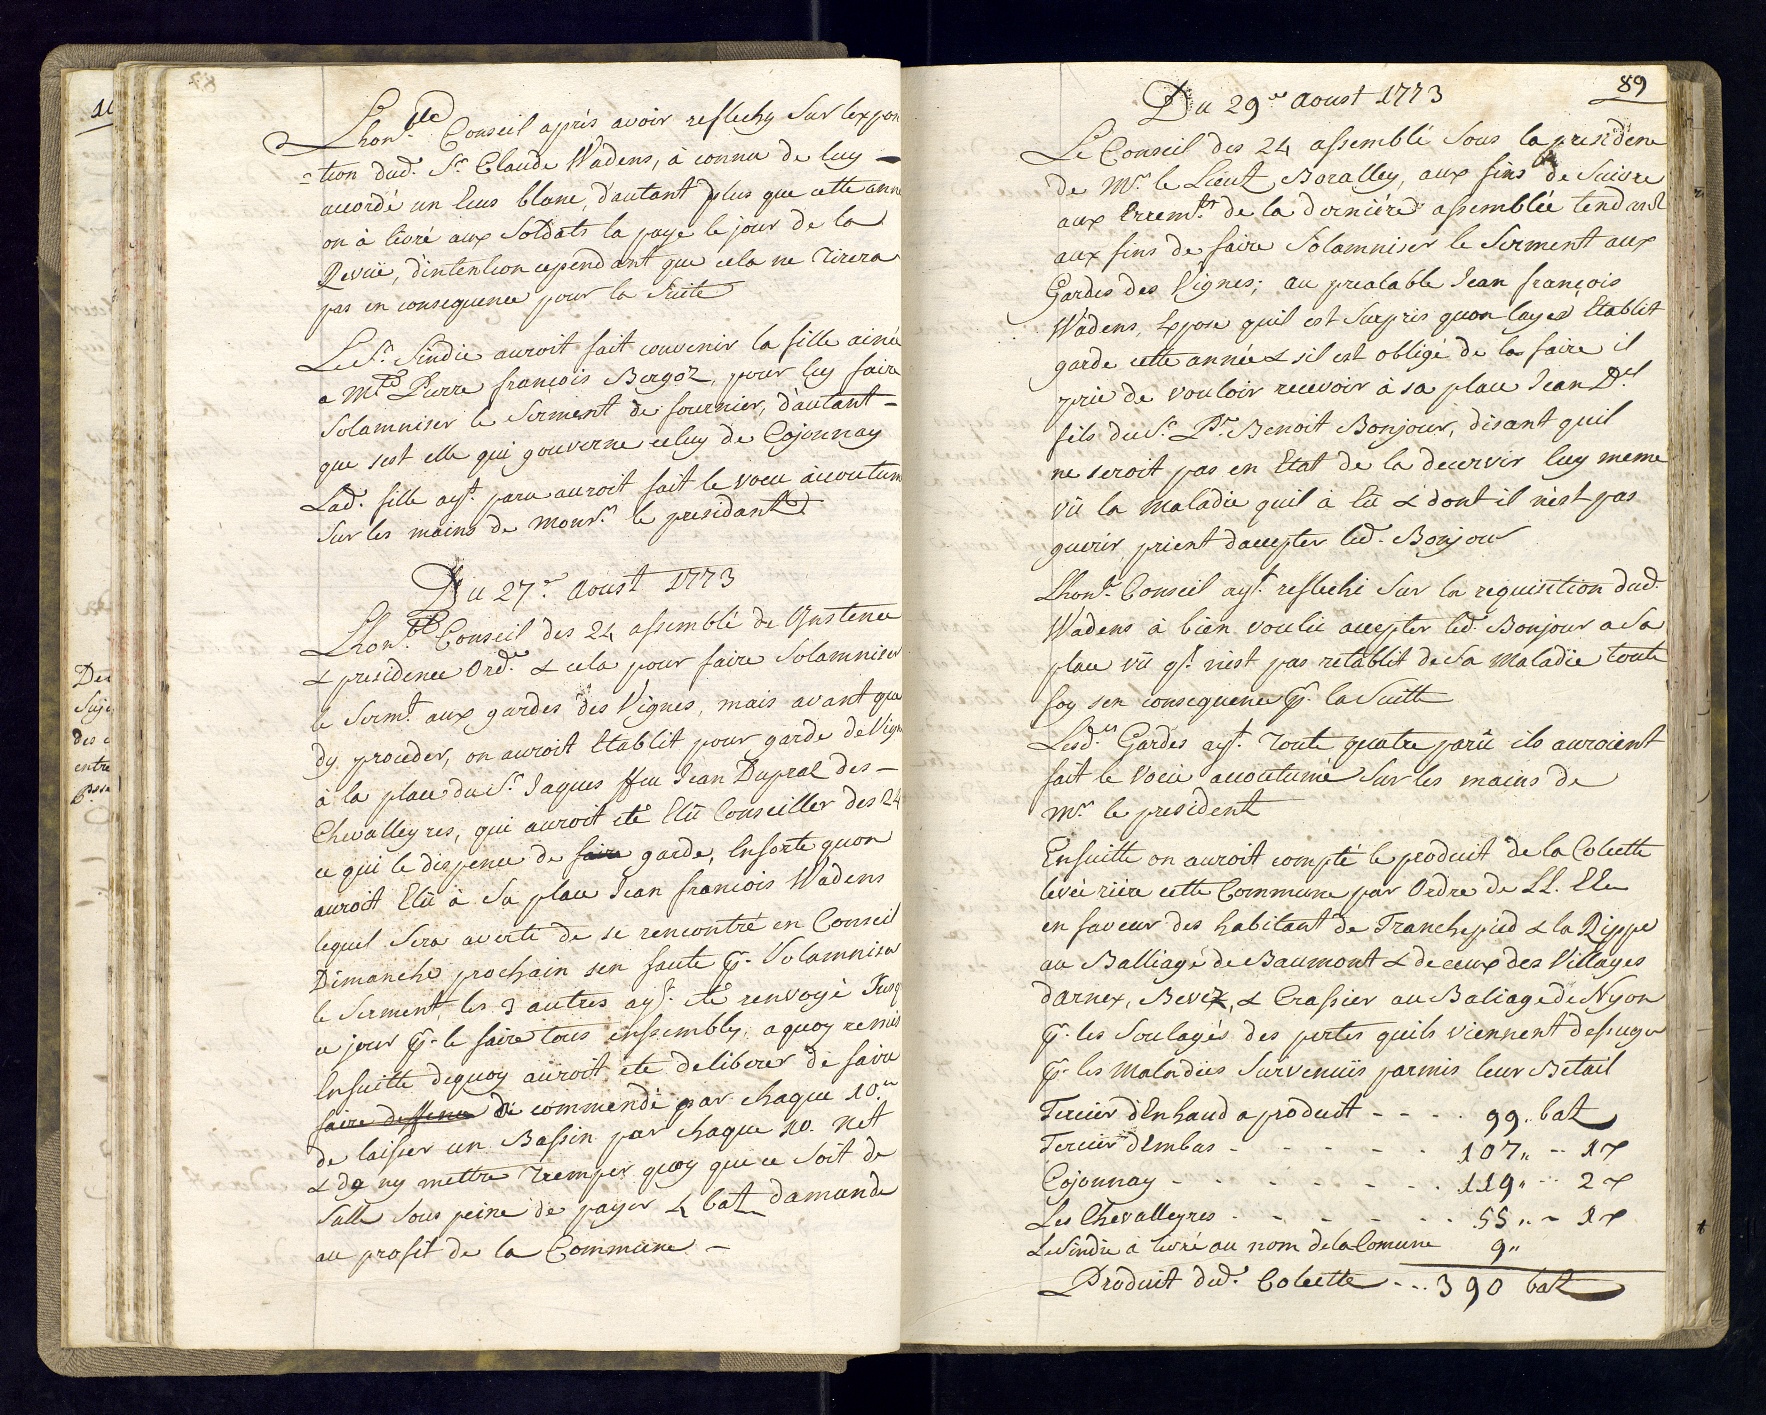 Lhon.ble Conseil aprés avoir reflechy Sur lexpon
=tion dud. Sr. Claude Wadens, à connu de luy
accordé un Ecus blanc, d'autant plus que cette anné
on à livré aux Soldats la paye le jour de la
Revüe, d'intention cependant que cela ne Tirera
pas en consequence pour la Suite
Le Sr. Sindic auroit fait couvenir la fille ainée
a Mtre Pierre françois Bergoz, pour luy faire
Solamniser le Serment de fournier, d'autant =
que sest elle qui gouverne celuy de Cojonnay
Lad. fille ayt. paru auroit fait le voeu acoutum
Sur les mains de Monsr. le presidant
Du 27.e Aoust 1773
Lhon.ble Conseil des 24 assemblé de Instence
& presidence Ord.e & cela pour faire Solamniser
le Sermt. aux gardes des Vignes, mais avant que
dy proceder, on auroit Etablit pour garde de Vign
à la place du Sr. Jaques ffeu Jean Dupraz des -
Chevalleyres, qui auroit eté Elû Conseiller des 24
ce qui le dispence de faire garde, Ensorte quon
auroit Elû à Sa place Jean francois Wadens
lequel Sera averti de se rencontré en Conseil
Dimanche prochain sen faute pr. Solamniser
le Serment les 3 autres ayt. eté renvoyé Jusq
a jour pr. le faire tous enssembly, aquoy remis
Ensuitte dequoy auroit eté deliberer de faire
faire deffence de commendé par chaque 10.ne
de laisser un Bassin par chaque no. net
& dy ny mettre Tremper quoy que ce Soit de
Salle Sous peine de payer 4 batz damande
au profit de la Commune -
89
Du 29e Aoust 1773
Le Conseil des 24 assemblé Sous la presidene
de Mr. le Lieut Boralley, aux fins de Suivre
aux Erremts. de la derniére assemblée tendant
aux fins de faire Solamniser le Serment aux
Gardes des Vignes; au prealable Jean françois
Wadens, Expose quil est Surpris quon laye Etablit
garde cette année & sil est obligé de la faire il
prie de vouloir recevoir à sa place Jean Dl.
fils du Sr. Pr. Benoit Bonjour, disant quil
ne seroit pas en Etat de la decervir luy meme
vû la Maladie quil à Eû & dont il n'est pas
guerir, prient daccepter led. Bonjour
Lhon.e Conseil ayt. reflechi Sur la requisition dud.
Wadens à bien voulû accepter led. Bonjour a Sa
place vû qt. n'est pas retablit de Sa Maladie toute
foy sen consequence pr. la Suitte
Lesd.es Gardes ayt. Toute quatre parû ils auroient
fait le Voeu accoutumé Sur les mains de
Mr. le president
Ensuitte on auroit compté le produit de la Colecte
levée riére cette Commune par Ordre de LL. EE
en faveur des habitant de Tranchepied & la Rippe
au Balliage de Baumont & de ceux des Villages
darnex, Bevex, & Crassier au Baliage de Nyon
pr. les Soulagés des pertes quils viennent dessuyer
pr. les Maladies Survenuïs parmis leur Betail
Tercier d'Enhaud a produit - - - . 99 „ batz
Tercier d'Embas - - - - - . 107 „ -- 1 x
Cojonnay - - - - - - - . 119 „ -- 2 x
Les Chevalleyres - - - - - . . 55 „ - 1 x
Le Sindic à livré au nom de la Comune 9 „
Produit dud. Colecte - - . . 390 batz